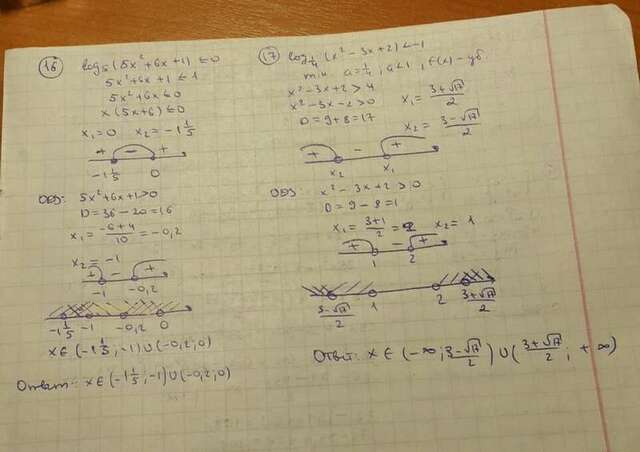 16) log₅(5x²+6x+1) ≤ 0
5x²+6x+1 ≤ 1
5x²+6x ≤ 0
x(5x+6) ≤ 0
x₁=0 x₂=-1 1/5
+ - +
-1 1/5 0
ОДЗ: 5x²+6x+1>0
D=36-20=16
x₁ = (-6+4)/10 = -0,2
x₂ = -1
+ - +
-1 -0,2
-1 1/5 -1 -0,2 0
x∈(-1 1/5; -1)∪(-0,2; 0)
Ответ: x∈(-1 1/5; -1)∪(-0,2; 0)
17) log_1/4 (x²-3x+2) < -1
т.к. a=1/4, a<1, f(x)-уб
x²-3x+2 > 4
x²-3x-2>0 x₁ = (3+√17)/2
D=9+8=17
x₂ = (3-√17)/2
+ - +
x₂ x₁
ОДЗ: x²-3x+2>0
D=9-8=1
x₁ = (3+1)/2 = 2 x₂=1
+ - +
1 2
(3-√17)/2 1 2 (3+√17)/2
Ответ: x∈(-∞; (3-√17)/2)∪((3+√17)/2; +∞)